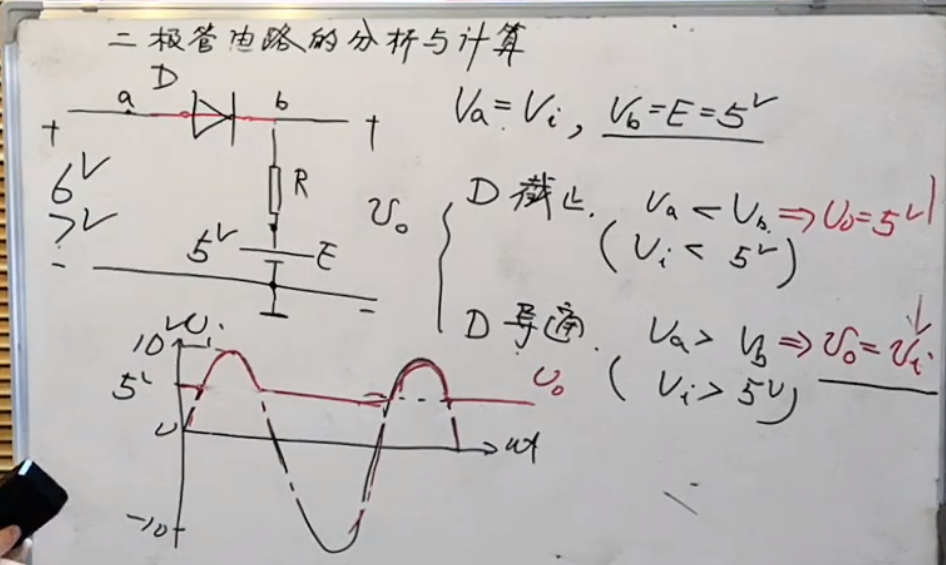 二极管电路的分析与计算
D
a
b
+
+
6V
7V
-
-
R
5V
E
Uo
Va=Vi, Vb=E=5V
D 截止. Va<Vb⇒Uo=5V
(Vi<5V)
D 导通. Va>Vb⇒Uo=Ui
(Vi>5V)
Ui
10V
5V
0
-10
Uo
ωt